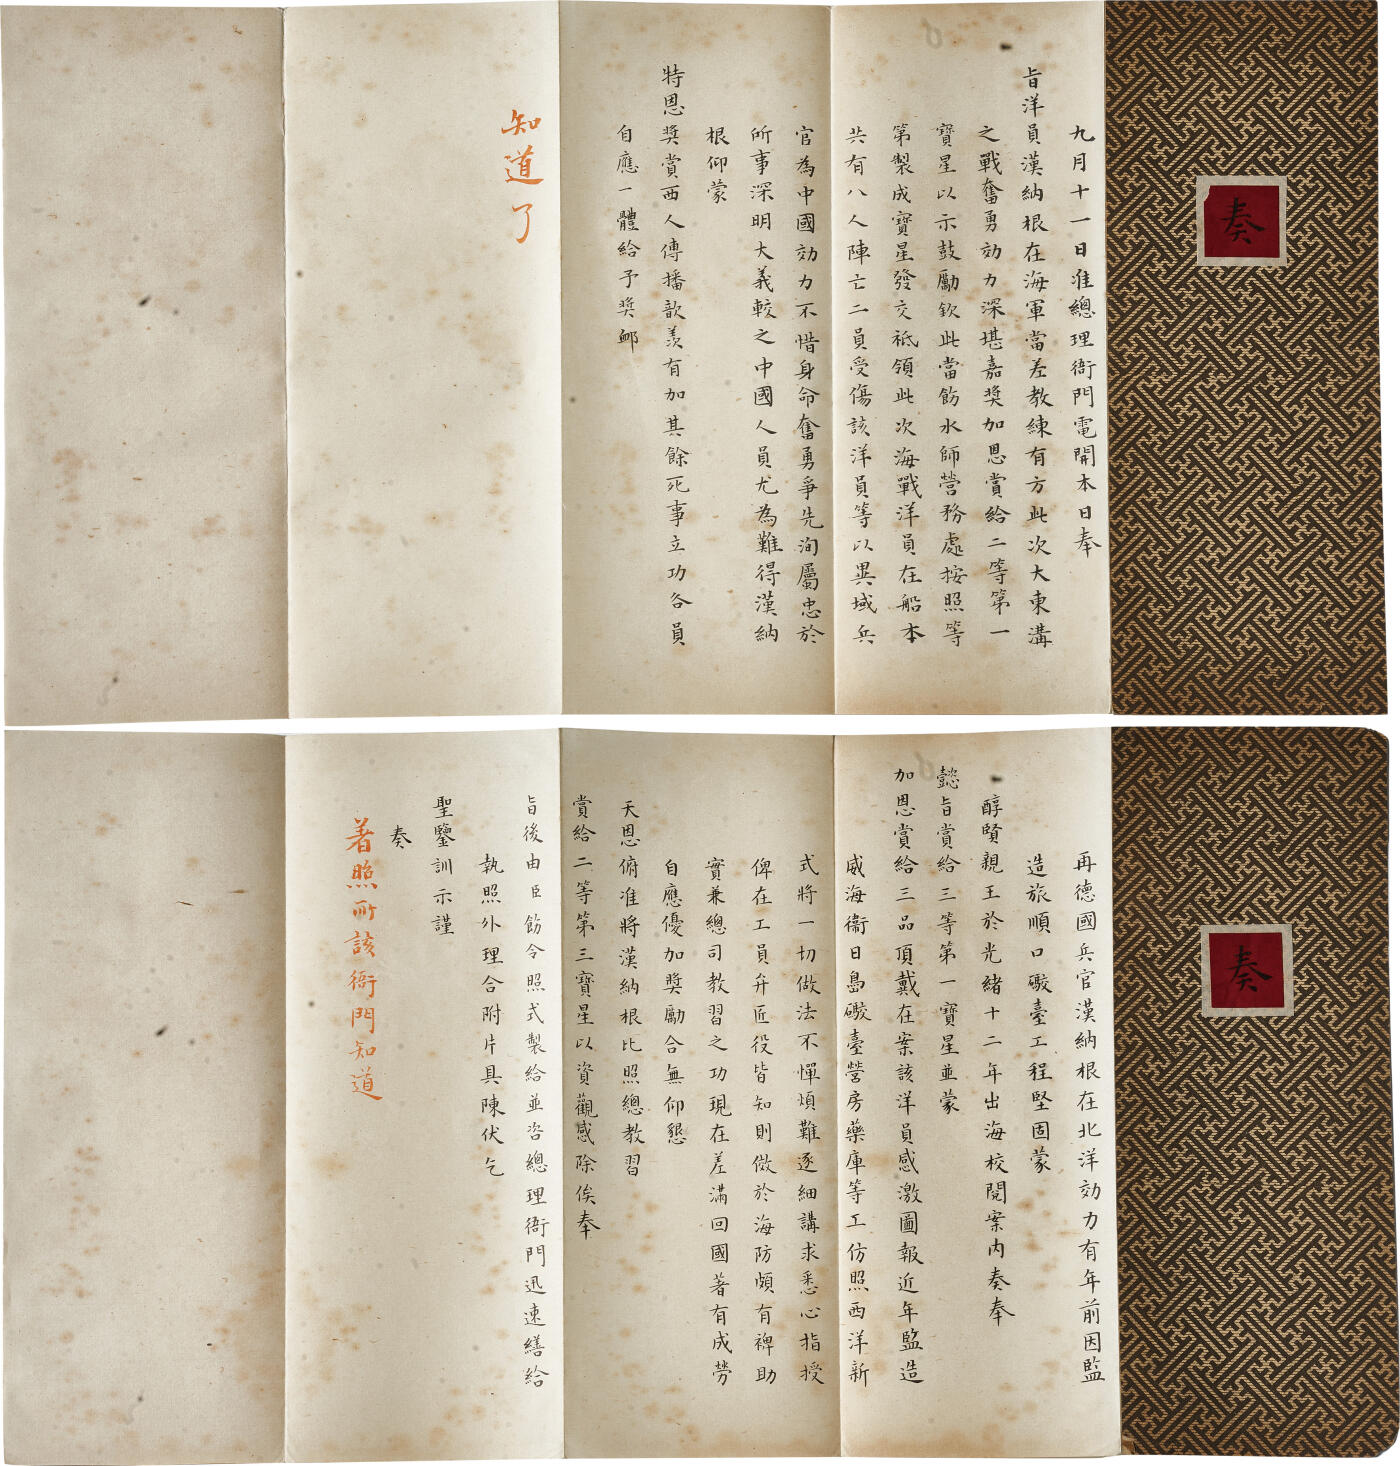 奏
九月十一日准總理衙門電開本日奉
旨洋員漢納根在海軍當差教練有方此次大東溝
之戰奮勇効力深堪嘉獎加恩賞給二等第一
寶星以示鼓勵欽此當飭水師營務處按照等
第製成寶星發交祗領此次海戰洋員在船本
共有八人陣亡二員受傷該洋員等以異域兵
官為中國効力不惜身命奮勇爭先洵屬忠於
所事深明大義較之中國人員尤為難得漢納
根仰蒙
特恩獎賞西人傳播歆羨有加其餘死事立功各員
自應一體給予獎卹
知道了
奏
再德國兵官漢納根在北洋効力有年前因監
造旅順口礮臺工程堅固蒙
醇賢親王於光緒十二年出海校閱案內奏奉
懿旨賞給三等第一寶星並蒙
加恩賞給三品頂戴在案該洋員感激圖報近年監造
威海衛日島礮臺營房藥庫等工仿照西洋新
式將一切做法不憚煩難逐細講求悉心指授
俾在工員弁匠役皆知則傚於海防頗有裨助
實兼總司教習之功現在差滿回國著有成勞
自應優加獎勵合無仰懇
天恩俯准將漢納根比照總教習
賞給二等第三寶星以資觀感除俟奉
旨後由臣飭令照式製給並咨總理衙門迅速繕給
執照外理合附片具陳伏乞
聖鑒訓示謹
奏
著照所該衙門知道